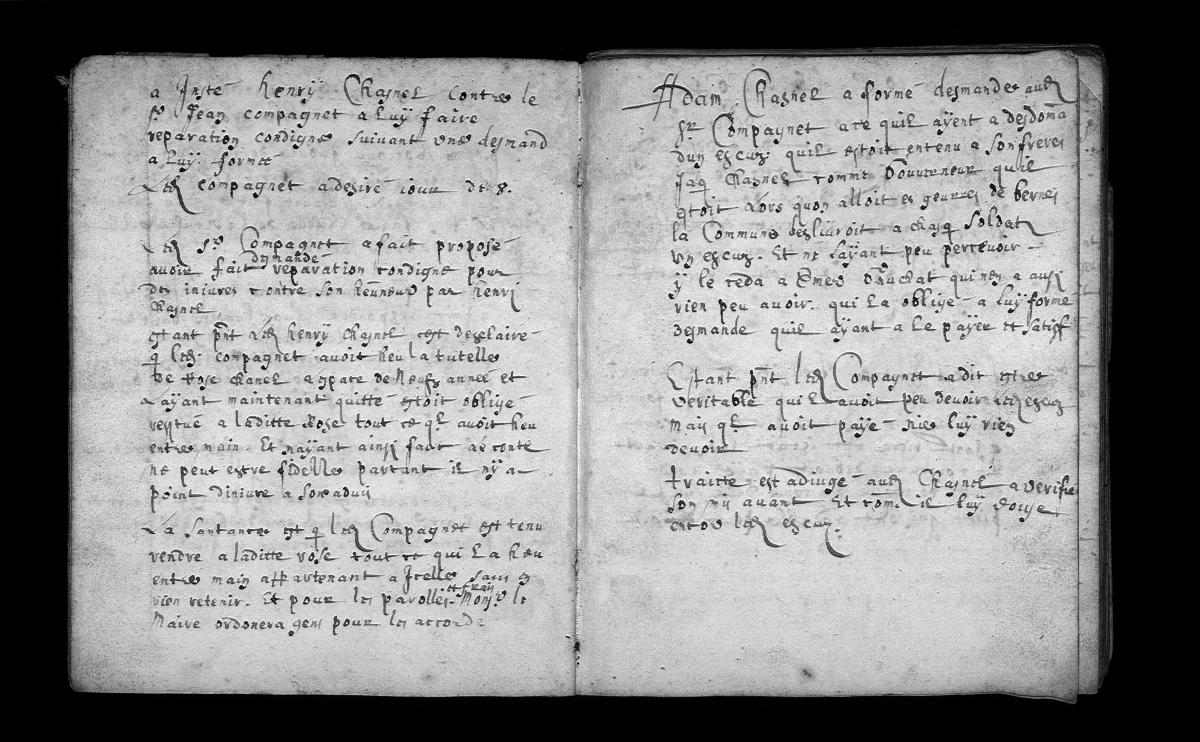 a Insté henrÿ Chasnel contre le
sr Jean compagnet a luÿ faire
reparation condigne suivant une desmand
a luÿ formée
Led compagnet a desiré iour de 8.
Led Sr Compagnet a fait proposé
desmandé
avoir fait reparation condigne pour
des iniures contre son heunneur par henri
Chasnel
estant pñt led henrÿ Chasnel cest desclairé
q led compagnet avoit heu la tutelle
de Rose Chanel espace de neufz année et
Layant maintenant quitté estoit obligé
restué a laditte Rose tout ce ql avoit heu
entre main. Et nayant ainsi fait ne conte
ne peut estre fidelle partant il nÿ a
point diniure a son aduis
La santance est q led Compagnet est tenu
rendre a laditte rose tout ce qui La heu
entre main appartenant a Icelle sans en
et frais
rien retenir. Et pour les parolles Monsr le
Maire ordonera gens pour les accordé
Adam Chasnel a formé desmande aud
Sr Compagnet a ce quil ayent a desdomã
dun escuz quil estoit entenu a son freres
Jaq Chasnel comme Gouverneur quil
estoit Lors quon alloit es geurres de bernes
la Commune desliuroit a chasq soldat
un escuz. Et ne Layant peu percevoir
ÿ le ceda a qui nen a ausi
rien peu avoir. qui La obligé a luÿ forme
desmande quil aÿant a le payer et satisf
Estant pñt led Compagnet a dit estre
veritable quil avoit peu devoir led escuz
mais ql avoit payé nie luÿ rien
devoir
traicte est adiugé aud Chasnel a verifie
son mis auant Et com̃e il luÿ doige
encor led escuz.